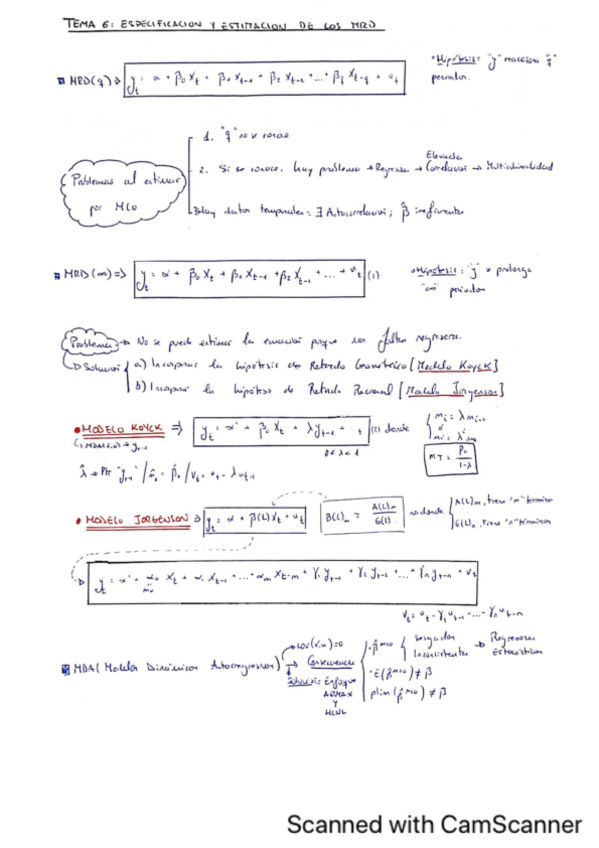 TEMA 6: ESPECIFICACION Y ESTIMACION DE LOS MRD
"Hipótesis: "y" reacciona "q" periodos.
MRD(q) ⇒ y_t = α + β₀ X_t + β₁ X_t-1 + β₂ X_t-2 + ... + β_q X_t-q + u_t
Problemas al estimar por MCO
1. "q" no se conoce
2. Si se conoce, hay problema → Regresores → Elevada Correlación → Multicolinealidad
3. Hay datos temporales = ∃ Autocorrelación; β̂ ineficientes
MRD(∞) => y_t = α + β₀ X_t + β₁ X_t-1 + β₂ X_t-2 + ... + u_t (1)
Hipótesis: "y" se prolonga "∞" periodos
Problema → No se puede estimar la ecuación porque son ∞ regresores.
Solución a) Incorporar la hipótesis de Retardo Geométrico [Modelo KOYCK]
b) Incorporar la hipótesis de Retardo Racional [Modelo Jorgenson]
• MODELO KOYCK => y_t = α' + β₀ X_t + λ y_t-1 + v_t (2) donde
0 < λ < 1
m_i = λ m_i-1
ó
m_i = λ^i m₀
m_T = β₀ / 1-λ
v_t = u_t - λ u_t-1
• MODELO JORGENSON => y_t = α + β(L) X_t + u_t
B(L)_∞ = A(L)_m / G(L)_n → donde
A(L)_m, tiene "m" términos
G(L)_n, tiene "n" términos
y_t = α' + α₀ X_t + α₁ X_t-1 + ... + α_m X_t-m + γ₁ y_t-1 + γ₂ y_t-2 + ... + γ_n y_t-n + v_t
m₀
v_t = u_t - γ₁ u_t-1 - ... - γ_n u_t-n
MDA (Modelos Dinámicos Autorregresivos)
COV(x,u) = 0
Consecuencia
Solución: Enfoque ARMAX Y MCNL
β̂ MCO
Sesgados
Inconsistentes
→ Regresores Estocásticos
E(β̂ MCO) ≠ β
plim(β̂ MCO) ≠ β
Scanned with CamScanner